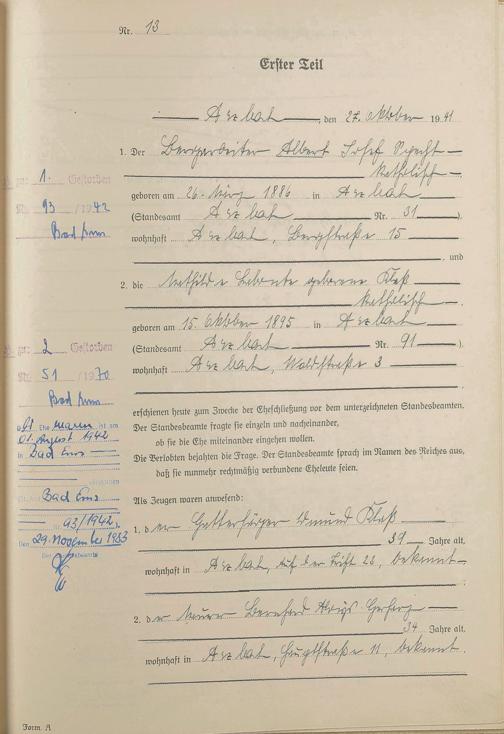 Nr. 13
Erster Teil
Arzbach, den 27. Oktober 1941
1. Der Bergarbeiter Albert Josef Specht
katholisch
geboren am 26. März 1886 in Arzbach
(Standesamt Arzbach Nr. 31).
wohnhaft Arzbach, Bergstraße 15
und
2. die Mathilde geborene Klaß
katholisch
geboren am 15. Oktober 1895 in Arzbach
(Standesamt Arzbach Nr. 91).
wohnhaft Arzbach, Waldstraße 3
erschienen heute zum Zwecke der Eheschließung vor dem unterzeichneten Standesbeamten.
Der Standesbeamte fragte sie einzeln und nacheinander,
ob sie die Ehe miteinander eingehen wollen.
Die Verlobten bejahten die Frage. Der Standesbeamte sprach im Namen des Reiches aus,
daß sie nunmehr rechtmäßig verbundene Eheleute seien.
Als Zeugen waren anwesend:
1. der Edmund Klaß
39 Jahre alt,
wohnhaft in Arzbach, Auf der Trift 28, bekannt
2. der Maurer Bernhard
34 Jahre alt,
wohnhaft in Arzbach, Hauptstraße 11, bekannt.
zu: 1. Gestorben
Nr. 93/1942
Bad Ems
zu: 2 Gestorben
Nr. 51/1970
Bad Ems
Die
01. August 1942
in Bad Ems
Bad Ems
Nr. 93/1942).
Den 29. November 1983
Form. A